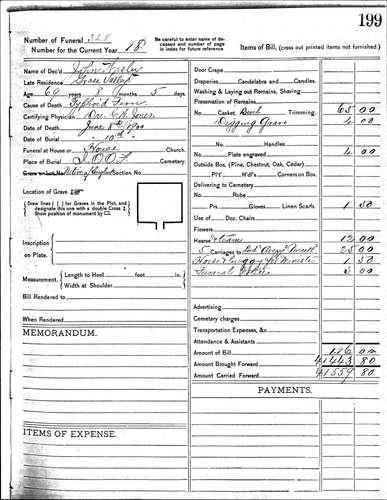 199
Number of Funeral 328
Number for the Current Year 18
Be careful to enter name of deceased and number of page in index for future reference
Items of Bill, (cross out printed items not furnished.)
Name of Dec'd John
Late Residence Grass Valley
Age 69 years 8 months 5 days.
Cause of Death Typhoid Fever
Certifying Physician Doc. Jones.
Date of Death June 8th 1900
Date of Burial " 10th "
Funeral at House or House Church.
Place of Burial I.O.O.F. Cemetery.
Grave or Lot No. Section
Location of Grave
Draw lines [ ] for Graves in the Plot, and designate this one with a double line. Show position of monument by
Inscription on Plate.
Measurement. Length to Heel feet in.
Width at Shoulder "
Bill Rendered to
When Rendered
MEMORANDUM.
ITEMS OF EXPENSE.
Door Crape
Draperies Candelabra and Candles.
Washing & Laying out Remains, Shaving
Preservation of Remains
No. Casket Trimming. 65 00
Digging Grave 4 00
No. Handles
No. Plate engraved 4 00
Outside Box, (Pine, Chestnut, Oak, Cedar)
P/Y. H'dl's Corners on Box.
Delivering to Cemetery
No. Robe
Prs. Gloves Linen Scarfs 1 50
Use of Doz. Chairs
Flowers
Hearse & Team 12 00
5 Carriages to 25 00
Horse & buggy for Minister 1 50
Funeral Notices 3 00
Advertising
Cemetery charges
Transportation Expenses, &c.
Attendance & Assistants
Amount of Bill 116 00
Amount Brought Forward 41443 80
Amount Carried Forward 41559 80
PAYMENTS.